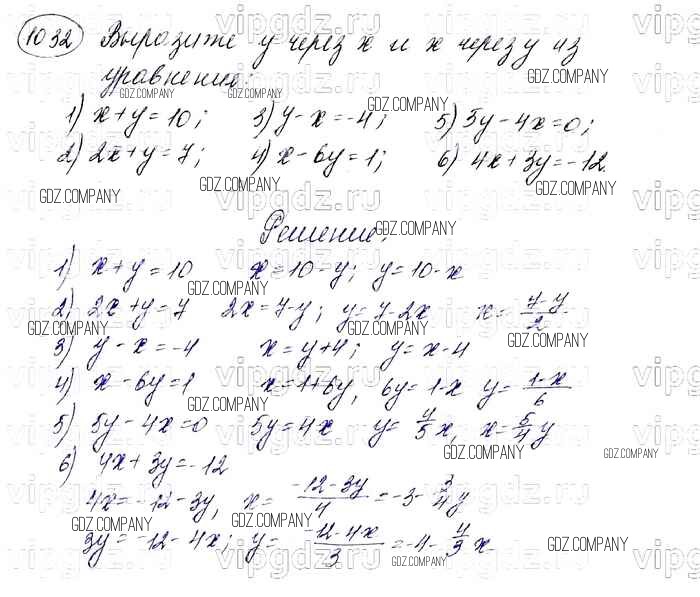 1032 Выразите y через x и x через y из
уравнения:
1) x+y=10; 3) y-x=-4; 5) 5y-4x=0;
2) 2x+y=7; 4) x-6y=1; 6) 4x+3y=-12.
Решение:
1) x+y=10 x=10-y; y=10-x
2) 2x+y=7 2x=7-y; y=7-2x x=\frac{7-y}{2}
3) y-x=-4 x=y+4; y=x-4
4) x-6y=1 x=1+6y, 6y=1-x y=\frac{1-x}{6}
5) 5y-4x=0 5y=4x y=\frac{4}{5}x, x=\frac{5}{4}y
6) 4x+3y=-12
4x=-12-3y, x=\frac{-12-3y}{4}=-3-\frac{3}{4}y
3y=-12-4x; y=\frac{-12-4x}{3}=-4-\frac{4}{3}x
vipgdz.ru
GDZ.COMPANY